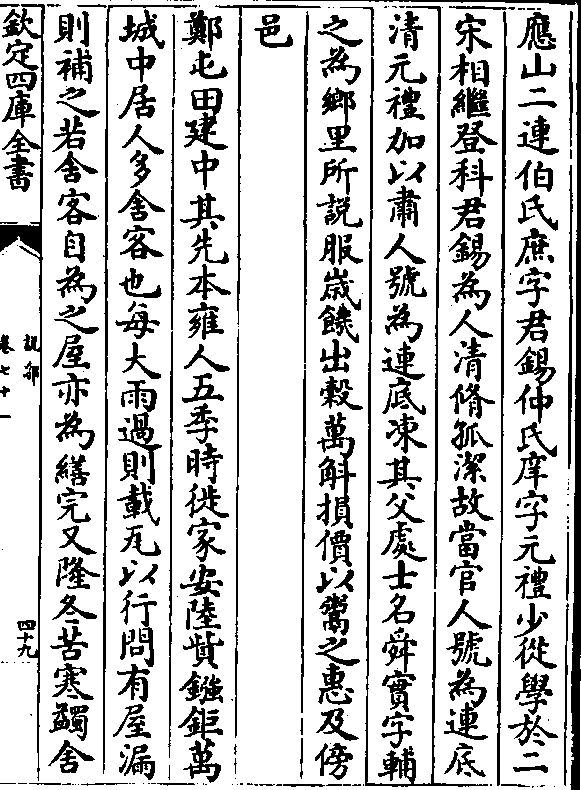 應山二連伯氏庶字君錫仲氏庠字元禮少從學於二
宋相繼登科君錫為人清脩孤潔故當官人號為連底
清元禮加以肅人號為連底凍其父處士名舜賓字輔
之為鄉里所説服歳饑出穀萬斛損價以鬻之惠及傍
邑
鄭屯田建中其先本雍人五季時徙家安陸貲鏹鉅萬
城中居人多舍客也每大雨過則載瓦以行問有屋漏
則補之若舍客自為之屋亦為繕完又隆冬苦寒蠲舍
欽定四庫全書
説郛
卷七十一
四十九